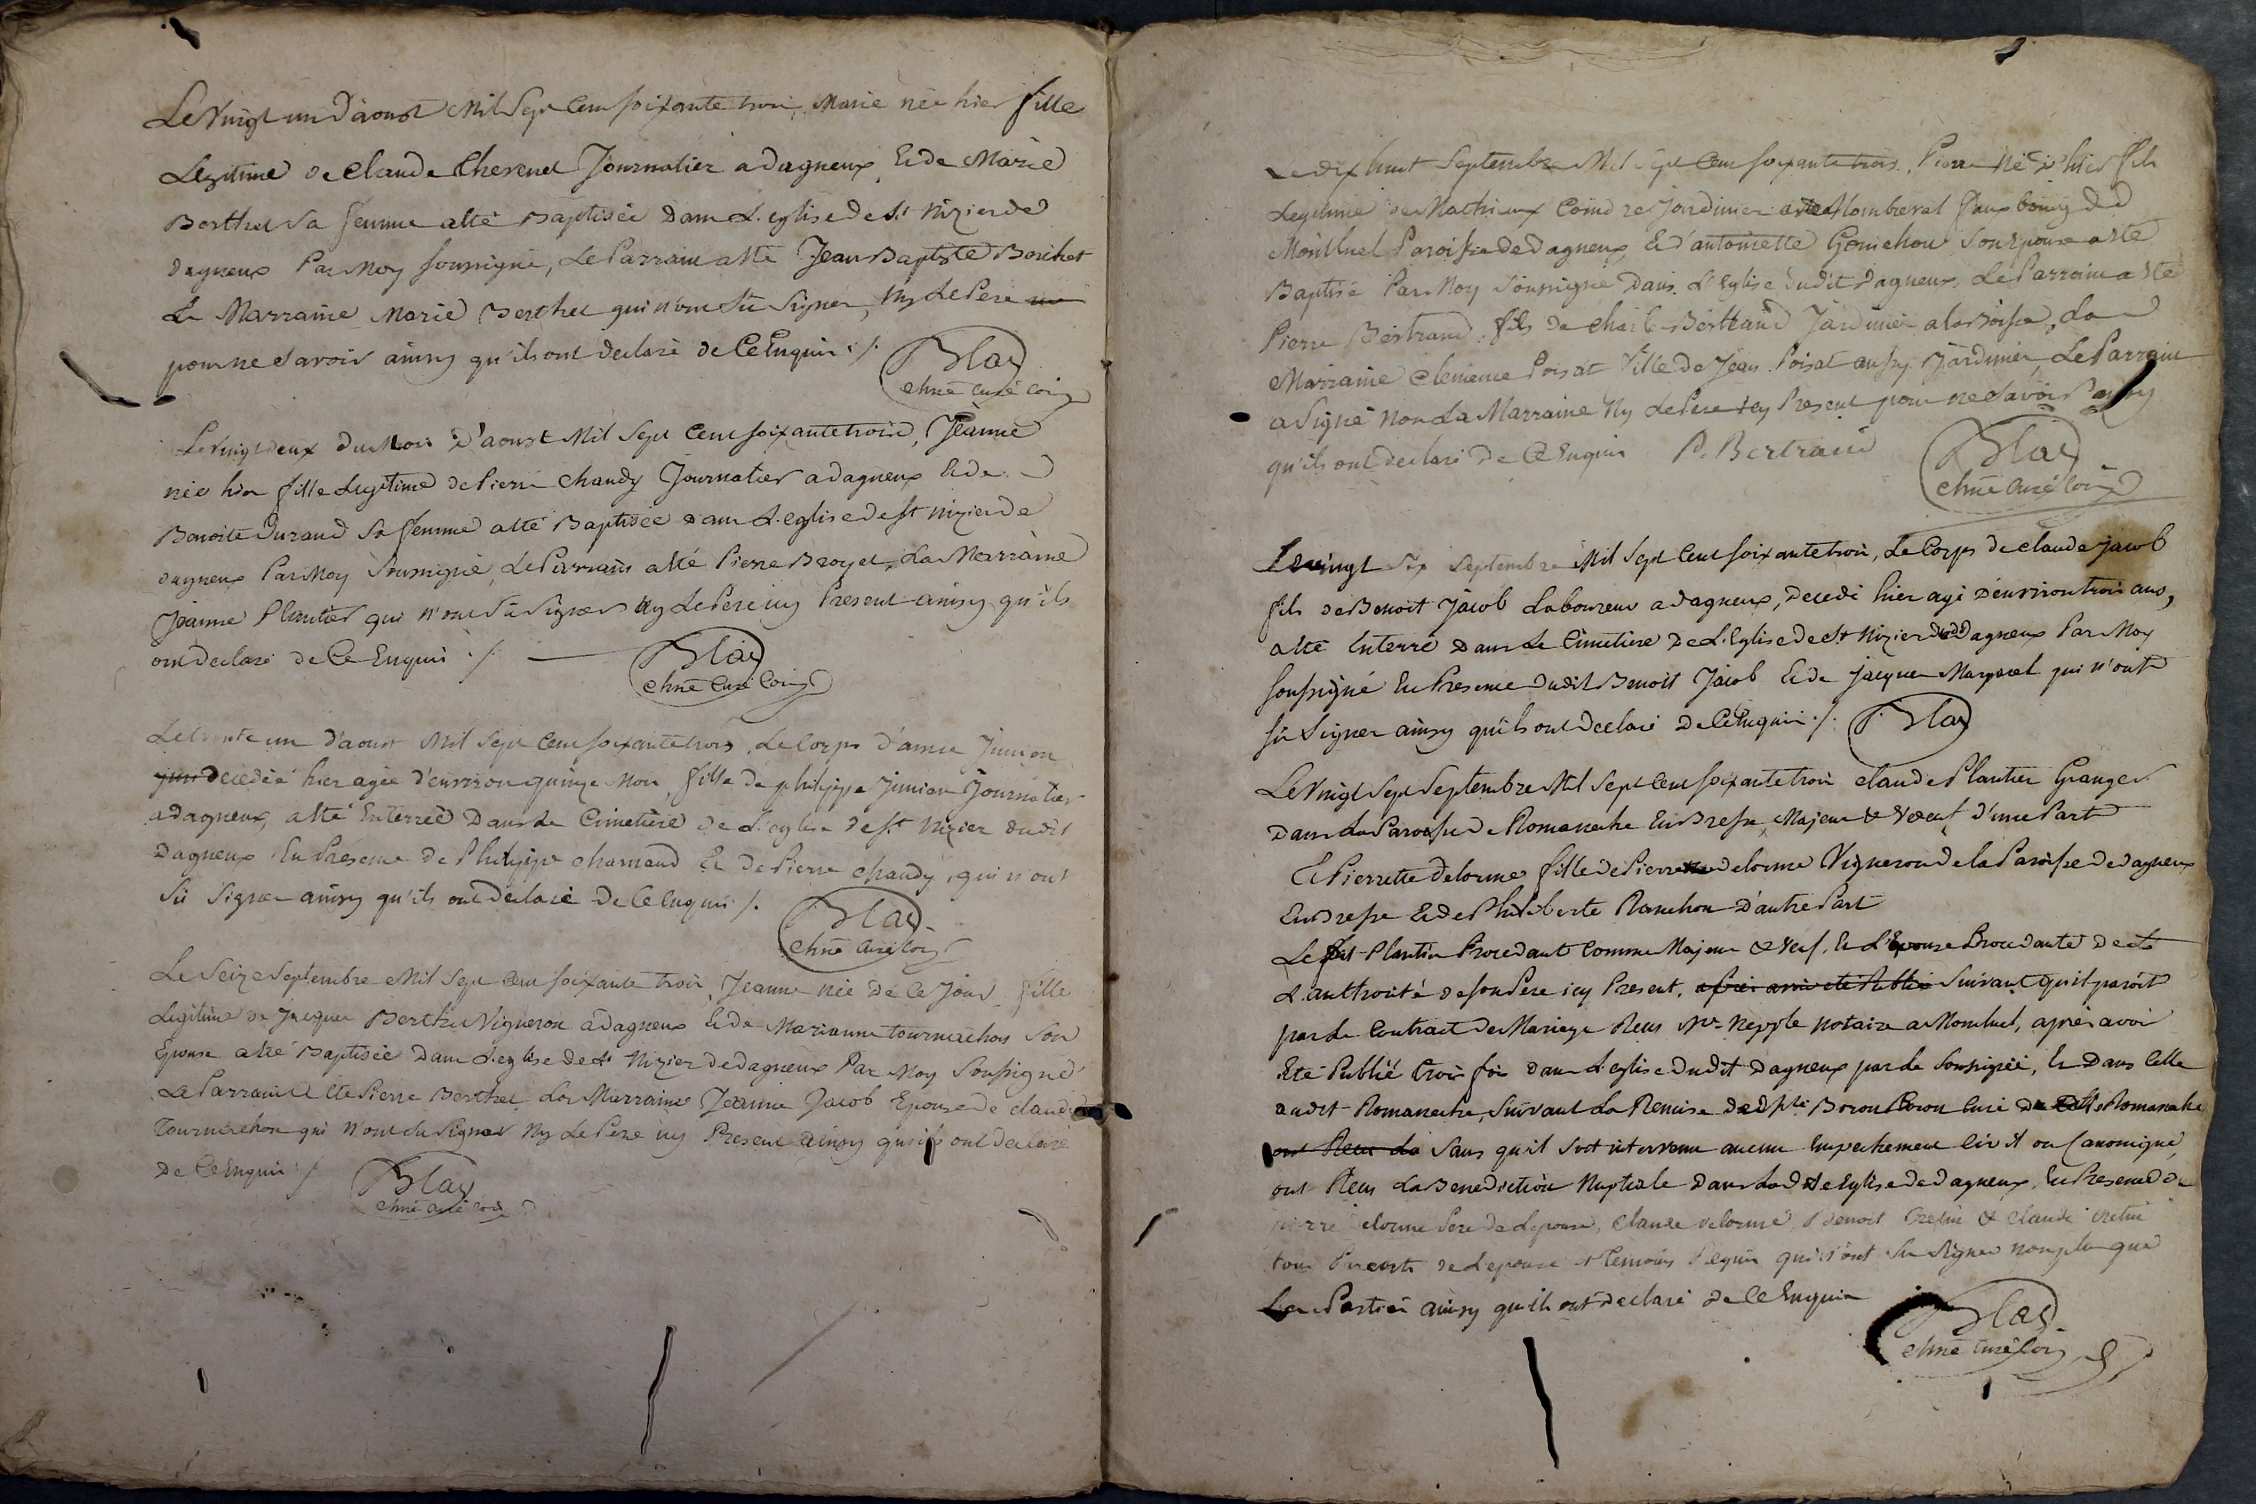 Le Vingt un D'aoust Mil Sept Cent soixante trois, Marie née hier fille
Legitime de Claude Chevenet Journalier a dagneux, Et de Marie
Berthet sa femme a été Baptisée Dans L'eglise de St Nizier de
dagneux Par Moy soussigné, Le Parrain a été Jean Baptiste Berthet
La Marraine Marie Berthet qui n'ont sû signer, Ny Le Pere
pour ne savoir ainsy qu'ils ont declaré de Ce Enquis ./.
Blas
chne curé
Le Vingt deux du Mois D'aoust Mil Sept Cent soixante trois, Jeanne
née hier fille Legitime de Pierre Chaudy Journalier a dagneux Et de
Benoite Durand sa femme a été Baptisée dans L'eglise de St Nizier de
dagneux Par Moy soussigné, Le Parrain a été Pierre Broyet, La Marraine
Jeanne Plantier qui n'ont sû signer Ny Le Pere icy Present ainsy qu'ils
ont declaré de Ce Enquis ./.
Blas
chne curé
Le trente un d'aoust Mil Sept Cent soixante trois, Le Corps d'anne Junion
decedée hier agée d'environ quinze Mois, fille de philippe Junion Journalier
a dagneux, a été Enterrée Dans Le Cimetière de L'eglise de St Nizier dudit
Dagneux En Presence de Philippe Charnaud Et de Pierre Chaudy, qui n'ont
sû signer ainsy qu'ils ont declaré de Ce Enquis ./.
Blas
chne curé
Le Seize Septembre Mil Sept Cent soixante trois, Jeanne née de Ce Jour, fille
Legitime de Jacques Berthet Vigneron a Dagneux Et de Marianne tournachon Son
Epouse a été Baptisée Dans L'eglise de St Nizier de dagneux Par Moy Soussigné
Le Parrain a été Pierre Berthet La Marraine Jeanne Jacob Epouse de Claude
Tournachon qui n'ont su signer Ny Le Pere icy Present ainsy qu'ils ont declaré
de Ce Enquis ./.
Blas
chne curé
Le dix huit Septembre Mil Sept Cent soixante trois, Pierre Né d'hier fils
Legitime de Mathieux Coindre Jardinier Monbreval faux bourg de
Montluel Paroisse de Dagneux, Et d'antoinette Gonichon son Epouse a été
Baptisé Par Moy Soussigné Dans L'Eglise dudit Dagneux, Le Parrain a été
Pierre Bertrand fils de Charle Bertrand Jardinier a la Boisse, La
Marraine Clemence Poisat Fille de Jean Poisat aussy Jardinier, Le Parrain
a Signé non La Marraine Ny Le Pere icy Present pour ne savoir ainsy
qu'ils ont declaré De Ce Enquis P. Bertrand
Blas
chne Curé
Le vingt Six Septembre Mil Sept Cent soixante trois, Le Corps de Claude Jacob
fils de Benoit Jacob Laboureur a dagneux, Decedé hier agé D'environ trois ans,
a été Enterré Dans Le Cimetiere De L'Eglise de St Nizier de Dagneux Par Moy
soussigné En Presence dudit Benoit Jacob Et de Jacques Margaret qui n'ont
sû Signer ainsy qu'ils ont declaré De Ce Enquis ./. Blas
Le Vingt Sept Septembre Mil Sept Cent soixante trois Claude Plantier Granger
Dans La Paroisse de Romaneche En Bresse, Majeur & Veuf, d'une Part
Et Pierrette Delorme fille de Pierre Delorme Vigneron de la Paroisse de dagneux
En Bresse Et de Philiberte Planchon D'autre Part
Le Plantier Procedant Comme Majeur & Veuf, Et L'Epouse Procedante de
L'authorité de son Pere icy Present, après avoir été Publié Suivant qu'il paroit
par Le Contract de Mariage Recu Me Nepple Notaire a Montluel, après avoir
Eté Publié trois fois Dans L'eglise Dudit Dagneux par Le Soussigné, Et Dans Celle
audit Romaneche, Suivant La Remise Curé Romaneche
ont Recu La Sans qu'il soit intervenu aucun Empechement Civil ou Canonique,
ont Recu La Benediction Nuptiale Dans Ladite Eglise de Dagneux, En Presence de
pierre Delorme Pere de Lepouse, Claude Delorme, Benoit Cretin & Claude Cretin
tous Parents de Lepouse & temoins Requis qui n'ont Su Signer non plus que
Les Parties ainsy qu'ils ont declaré de Ce Enquis
Blas
chne Curé